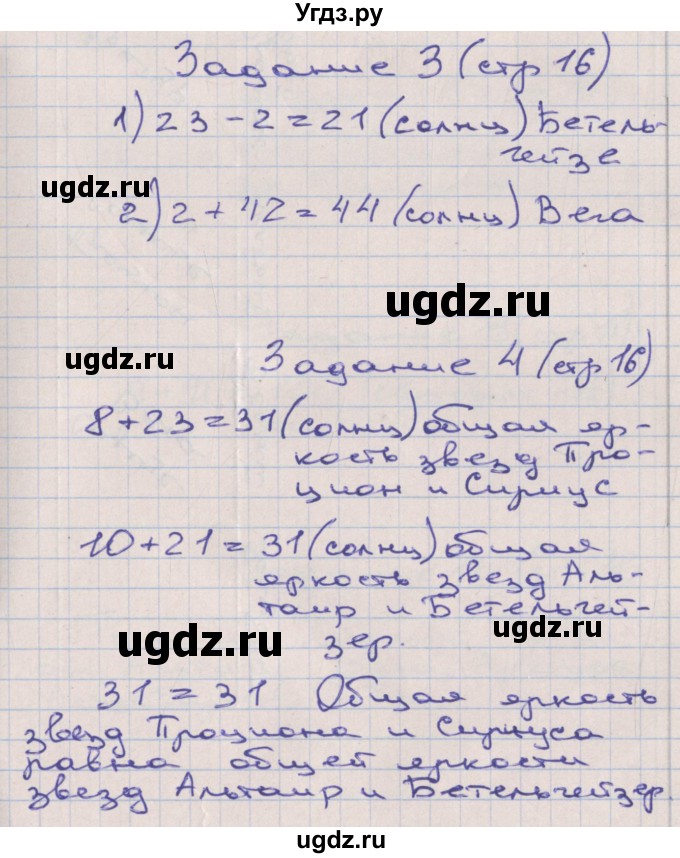 Угдз.ру
Задание 3 (стр 16)
1) 23 - 2 = 21 (солнц) Бетель-
гейзе
ugdz.ru
2) 2 + 42 = 44 (солнц) Вега
ugdz.ru
ugdz.ru
Задание 4 (стр 16)
8 + 23 = 31 (солнц) общая яр-
кость звезд Про-
цион и Сириус
10 + 21 = 31 (солнц) общая
яркость звезд Аль-
таир и Бетельгей-
ugdz.ru
ugdz.ru
зер.
31 = 31 Общая яркость
звезд Проциона и Сириуса
равна общей яркости
звезд Альтаир и Бетельгейзер.
ugdz.ru